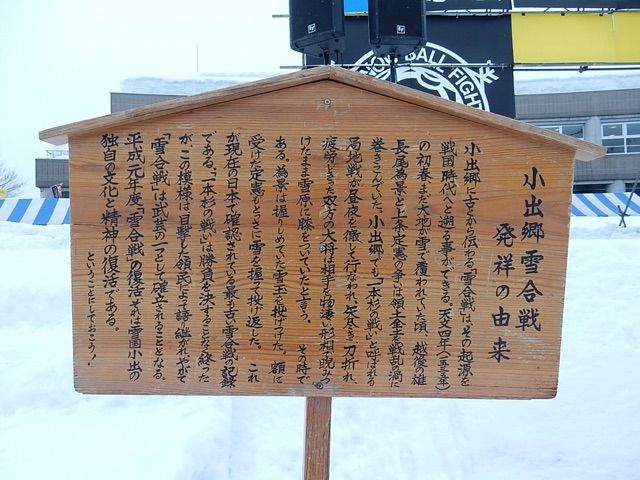 小出郷雪合戦
発祥の由来
小出郷に古くから伝わる「雪合戦」は、その起源を
戦国時代へと遡る事ができる。天文四年(一五三五年)
の初春、まだ大地が雪で覆われていた頃、越後の雄
長尾為景と上条定憲の争いは領土全土を戦乱の渦に
巻きこんでいた。小出郷でも「一本杉の戦い」と呼ばれる
局地戦が昼夜を徹して行なわれ、矢尽き、刀折れ、
疲労しきった双方の大将は相手を物凄い形相で睨みつ
けたまま雪原に膝をついていたと言う。 その時で
ある。為景は握りめていた雪玉を投げつけた。額に
受けた定憲もとっさに雪を握って投げ返した。 これ
が現在の日本で確認されている最も古い雪合戦の記録
である。「一本杉の戦い」は勝負を決することなく終った
が、この模様を目撃した領民により語り継がれ、やがて
「雪合戦」は武芸の一つとして確立されることとなる。
平成元年度「雪合戦」の復活、それは雪国小出の
独自の文化と精神の復活である。
ということにしておこう!
BALL FIGH